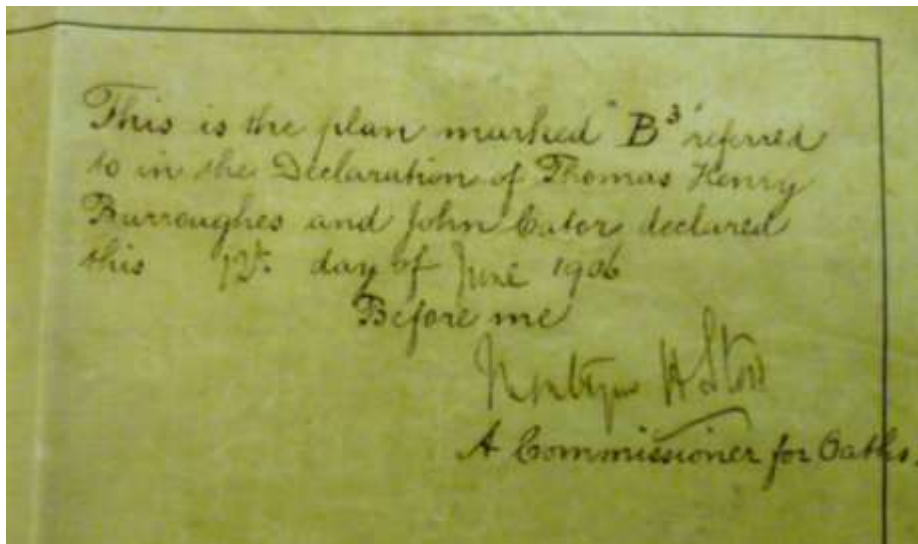 This is the plan marked "B³" referred
to in the Declaration of Thomas Henry
Burroughes and John Cator declared
this 12th day of June 1906
Before me
A Commissioner for Oaths.